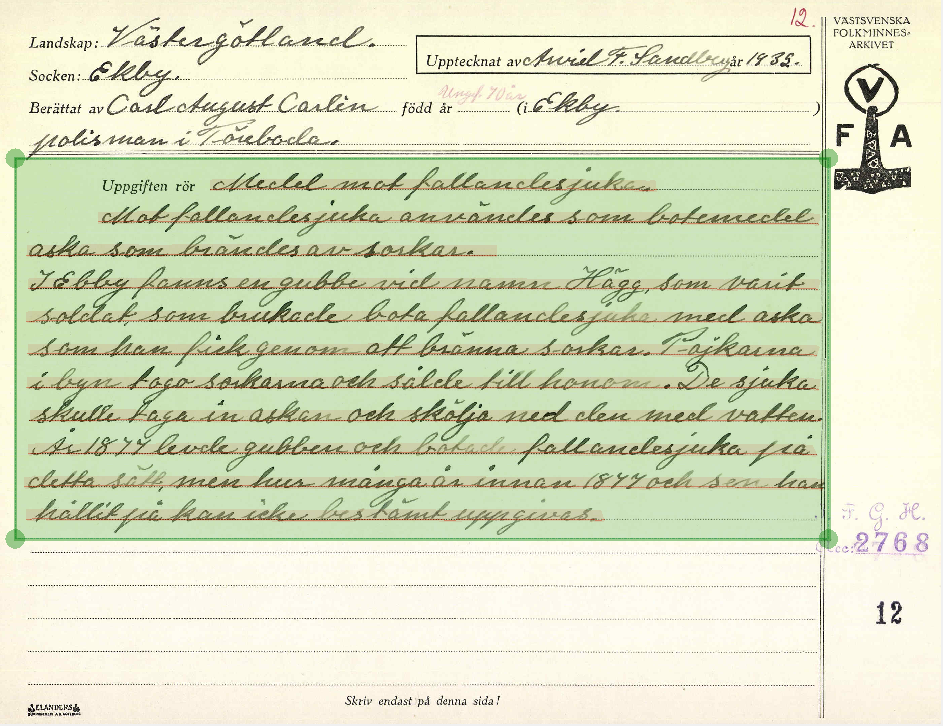 12.
VÄSTSVENSKA
FOLKMINNES-
ARKIVET
Landskap: Västergötland.
Upptecknat av Arvid F. Sandberg år 1935.
Socken: Ekby.
Ungf. 70 år
Berättat av Carl August Carlén född år (i Ekby. )
polisman i Töreboda.
V
F A
Uppgiften rör Medel mot fallandesjuka.
Mot fallandesjuka användes som botemedel
aska som brändes av sorkar.
I Ekby fanns en gubbe vid namn Hägg, som varit
soldat, som brukade bota fallandesjuka med aska
som han fick genom att bränna sorkar. Pojkarna
i byn togo sorkarna och sålde till honom. De sjuka
skulle taga in askan och skölja ned den med vatten.
År 1877 levde gubben och botade fallandesjuka på
detta sätt, men hur många år innan 1877 och sen han
hållit på kan icke bestämt uppgivas.
F. G. H.
Acc: 2768
12
Skriv endast på denna sida!
ELANDERS